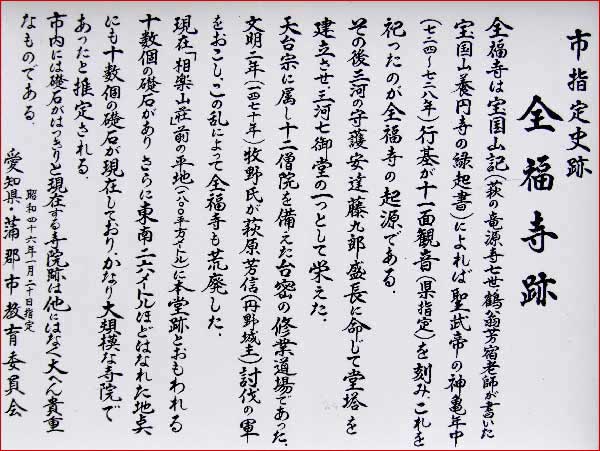 市指定史跡
全福寺跡
全福寺は宝国山記(萩の竜源寺七世鶴翁芳宿老師が書いた
宝国山養円寺の縁起書)によれば聖武帝の神亀年中
(七二四~七二八年)行基が十一面観音(県指定)を刻み、これを
祀ったのが全福寺の起源である。
その後三河の守護安達藤九郎盛長に命じて堂塔を
建立させ三河七御堂の一つとして栄えた。
天台宗に属し十二僧院を備えた台密の修業道場であった。
文明二年(一四七十年)牧野氏が萩原芳信(丹野城主)討伐の軍
をおこし、この乱によって全福寺も荒廃した。
現在「相楽山荘」前の平地(八〇〇平方メートル)に本堂跡とおもわれる
十数個の礎石があり さらに東南二六メートルほどはなれた地点
にも十数個の礎石が現在しており、かなり大規模な寺院で
あったと推定される。
市内には礎石がはっきりと現在する寺院跡は他にはなく大へん貴重
なものである。
昭和四十六年一月二十日指定
愛知県・蒲郡市教育委員会